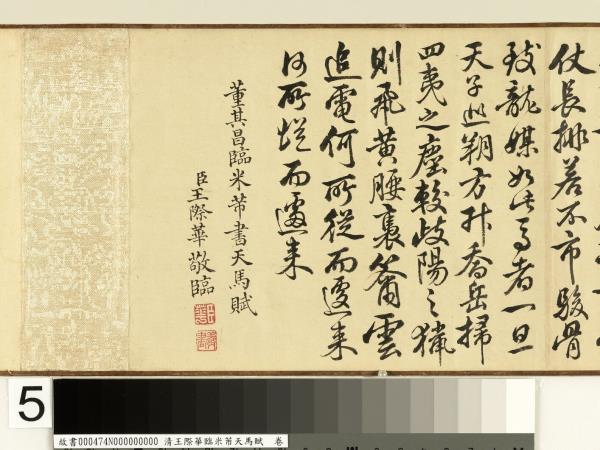 仗長排若不市駿骨
致龍媒如此馬者一旦
天子巡朔方升喬岳掃
四夷之塵較岐陽之獵
則飛黃腰褭籋雲
追電何所從而遽來
何所從而遽來
董其昌臨米芾書天馬賦
臣王際華敬臨
5
故書000474N000000000 清王際華臨米芾天馬賦 卷